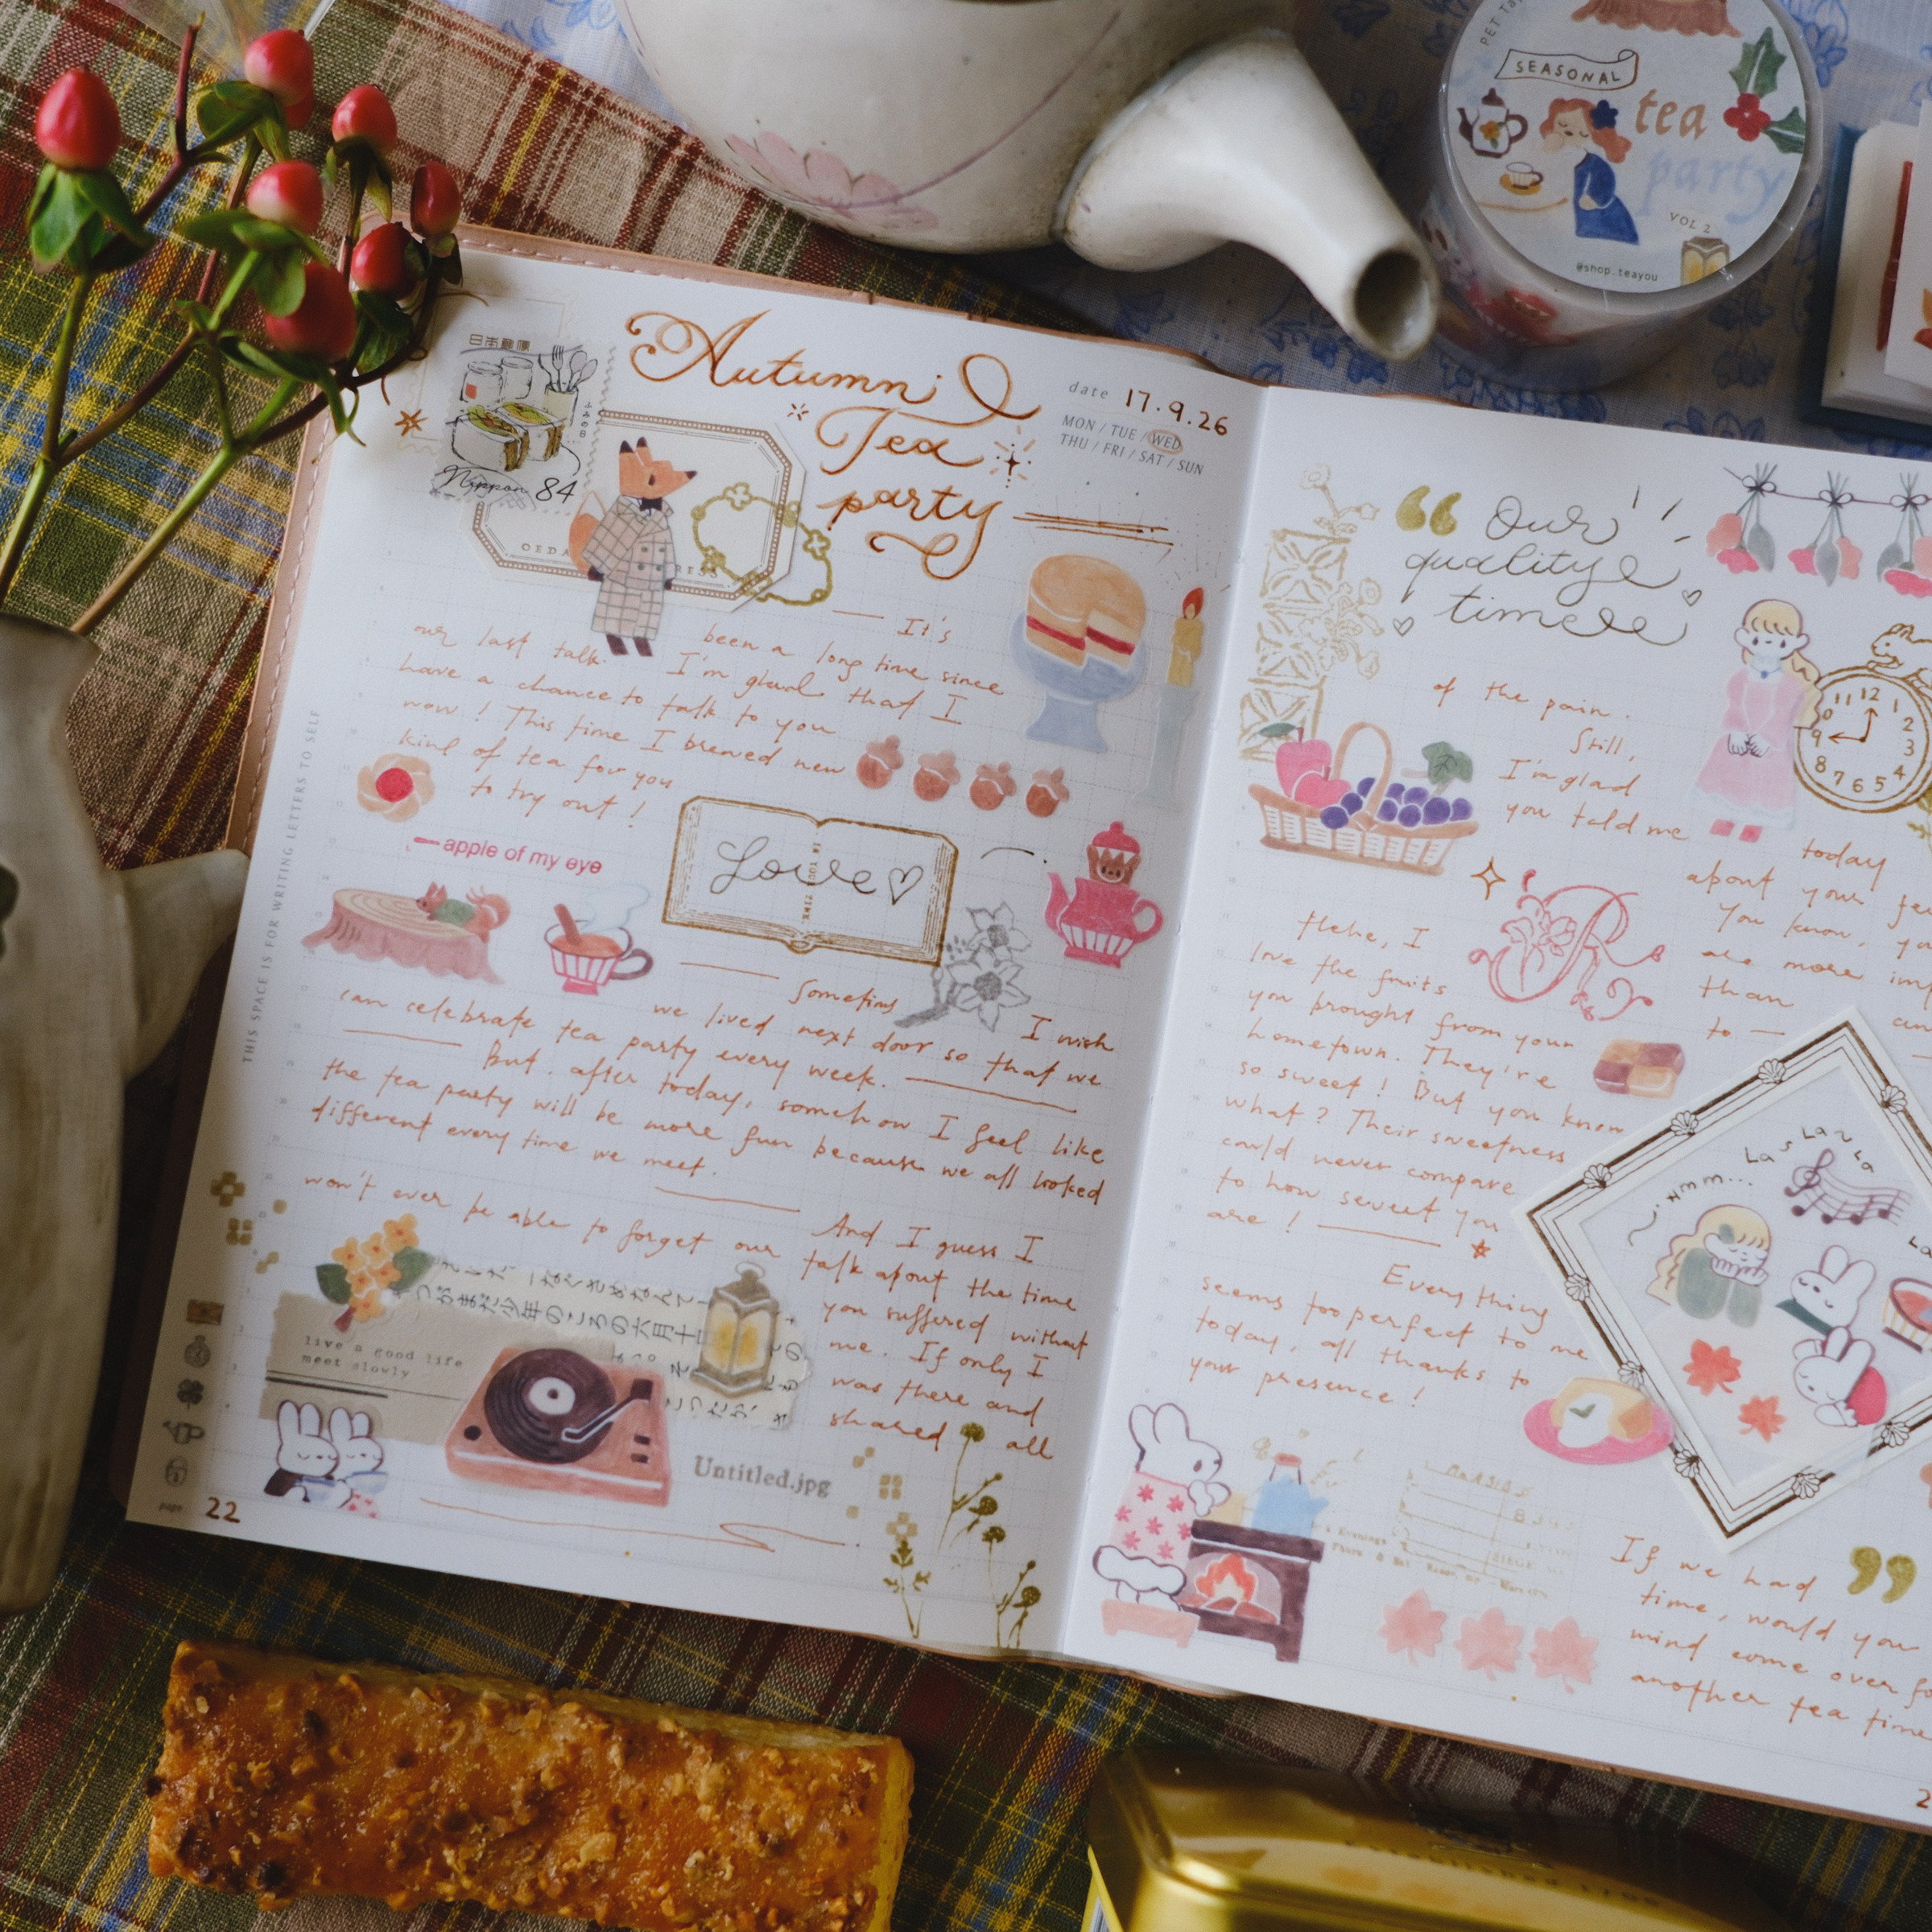 PET Ta
SEASONAL
tea
party
VOL 2
@shop.teayou
日本郵便
Nippon 84
Autumn
Tea
party
date 17.9.26
MON / TUE / WED
THU / FRI / SAT / SUN
It's
been a long time since
our last talk. I'm glad that I
have a chance to talk to you
now! This time I brewed new
kind of tea for you
to try out!
apple of my eye
Love♡
Sometimes I wish
we lived next door so that we
can celebrate tea party every week.
But, after today, somehow I feel like
the tea party will be more fun because we all looked
different every time we meet.
And I guess I
won't ever be able to forget our
talk about the time
you suffered without
me. If only I
was there and
shared all
live a good life
meet slowly
少年のころの六月十
Untitled.jpg
THIS SPACE IS FOR WRITING LETTERS TO SELF
page 22
“ Our
quality
time
of the pain.
Still,
I'm glad
you told me
today
about your fe
You know, yo
are more imp
than
to —
11 12 1
2
3
4
5
6
7
8
9
R
Hehe, I
love the fruits
you brought from your
hometown. They're
so sweet! But you know
what? Their sweetness
could never compare
to how sweet you
are!
Everything
seems too perfect to me
today, all thanks to
your presence!
Hmm...
La La La
La
If we had
time, would you
mind come over fo
another tea time
”
2